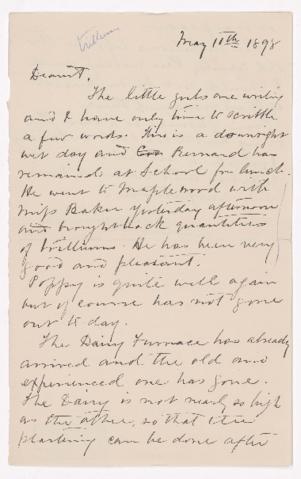 Trillium
May 11th 1898
Dearest,
The little girls are writing
and I have only time to scribble
a few words. This is a downright
wet day and Bernard has
remained at School for lunch.
He went to Maplewood with
Miss Baker yesterday afternoon
and brought back quantities
of trilliums. He has been very
good and pleasant.
Poppy is quite well again
but of course has not gone
out to day.
The Dairy Furnace has already
arrived and the old and
experienced one has gone.
The Dairy is not nearly so high
as the other, so that the
plastering can be done after